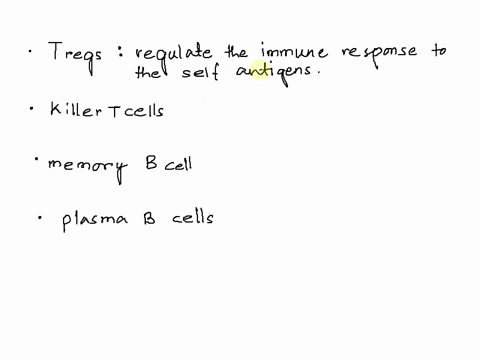 · Tregs : regulate the immune response to
the self antigens.
· Killer T cells
· memory B cell
· plasma B cells